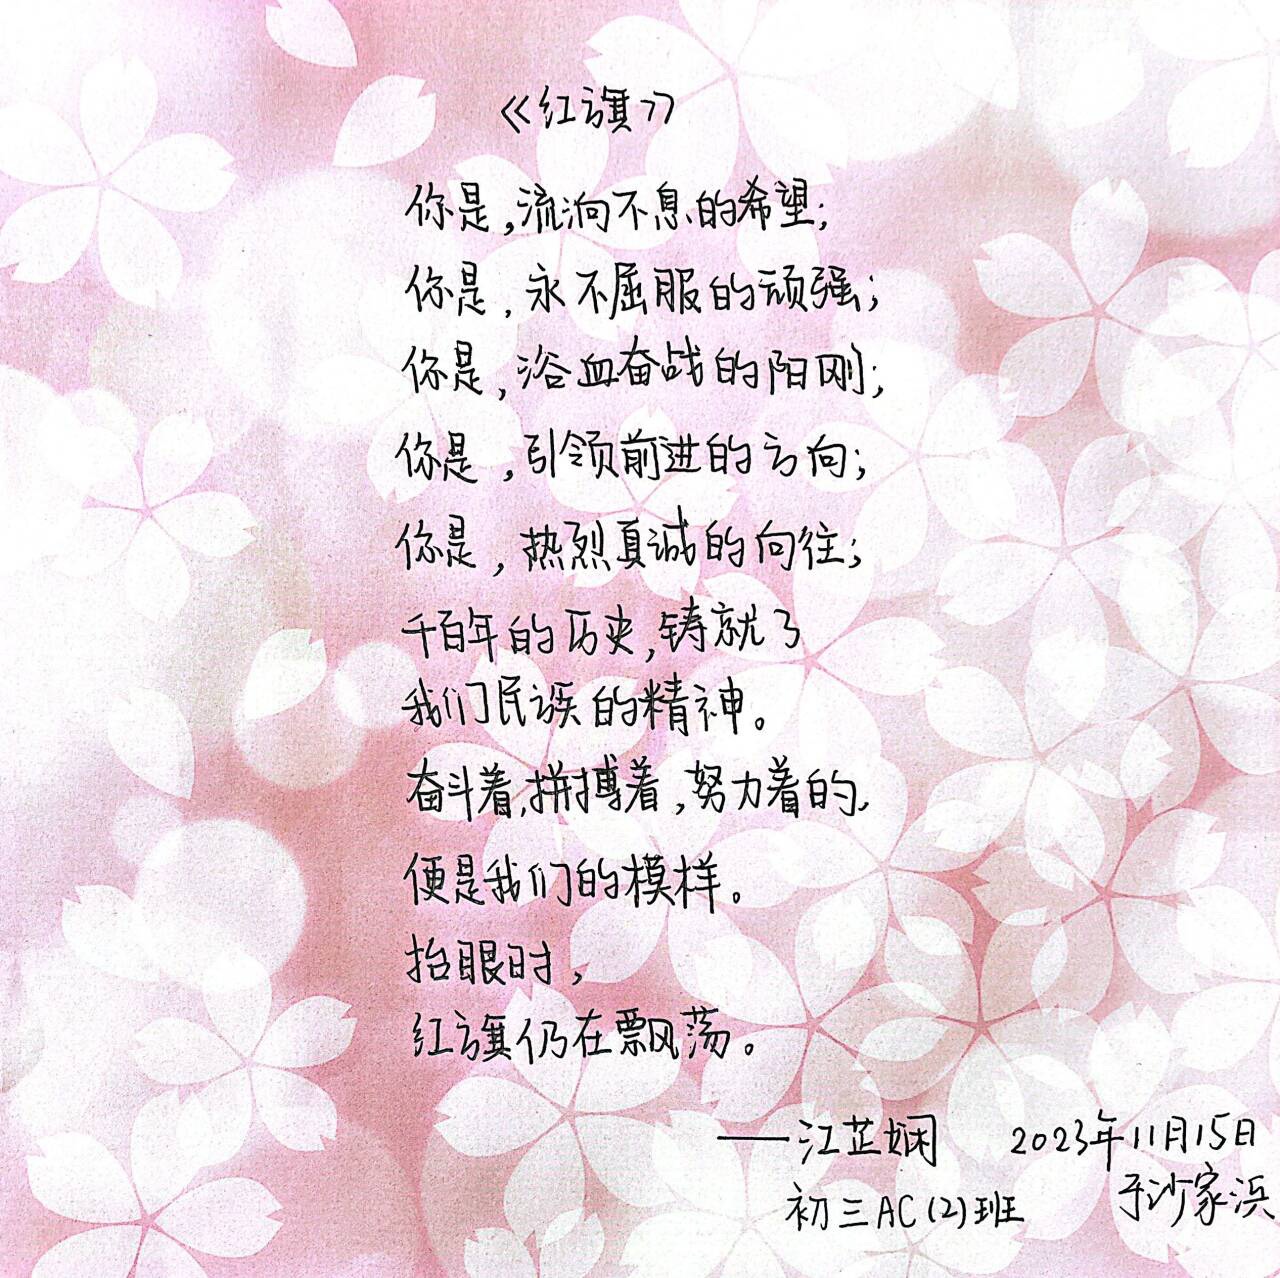 《红旗》
你是,流淌不息的希望;
你是,永不屈服的顽强;
你是,浴血奋战的阳刚;
你是,引领前进的方向;
你是,热烈真诚的向往;
千百年的历史,铸就了
我们民族的精神。
奋斗着,拼搏着,努力着的,
便是我们的模样。
抬眼时,
红旗仍在飘荡。
——江芷娴 2023年11月15日
初三AC(2)班 于沙家浜